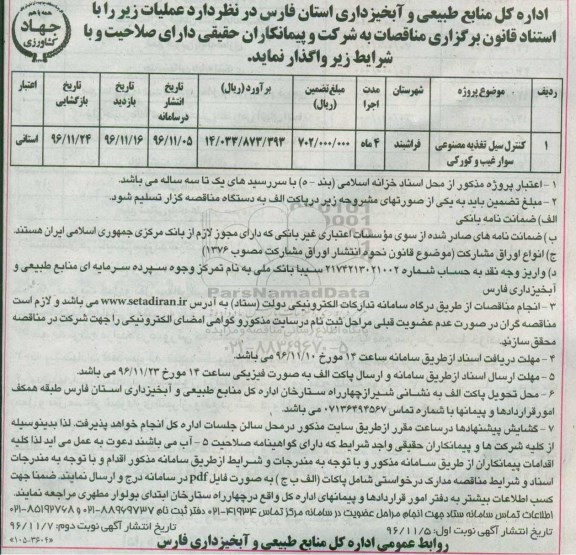 اداره کل منابع طبیعی و آبخیزداری استان فارس در نظر دارد عملیات زیر را با
استناد قانون برگزاری مناقصات به شرکت و پیمانکاران حقیقی دارای صلاحیت و با
شرایط زیر واگذار نماید.
جهاد
کشاورزی
ردیف موضوع پروژه شهرستان مدت اجرا مبلغ تضمین (ریال) برآورد (ریال) تاریخ انتشار در سامانه تاریخ بازدید تاریخ بازگشایی اعتبار
۱ کنترل سیل تغذیه مصنوعی سوار غیب و کورکی فراشبند ۴ ماه ۷۰۲/۰۰۰/۰۰۰ ۱۴/۰۳۳/۸۷۳/۳۹۳ ۹۶/۱۱/۰۵ ۹۶/۱۱/۱۶ ۹۶/۱۱/۲۴ استانی
۱ - اعتبار پروژه مذکور از محل اسناد خزانه اسلامی (بند - ه) با سررسید های یک تا سه ساله می باشد.
۲ - مبلغ تضمین باید به یکی از صورتهای مشروحه زیر در پاکت الف به دستگاه مناقصه گزار تسلیم شود.
الف) ضمانت نامه بانکی
ب) ضمانت نامه های صادر شده از سوی مؤسسات اعتباری غیر بانکی که دارای مجوز لازم از بانک مرکزی جمهوری اسلامی ایران هستند.
ج) انواع اوراق مشارکت (موضوع قانون نحوه انتشار اوراق مشارکت مصوب ۱۳۷۶)
د) واریز وجه نقد به حساب شماره ۲۱۷۴۲۱۳۰۲۱۰۰۲ سیبا بانک ملی به نام تمرکز وجوه سپرده سرمایه ای منابع طبیعی و
آبخیزداری فارس
۳ - انجام مناقصات از طریق درگاه سامانه تدارکات الکترونیکی دولت (ستاد) به آدرس www.setadiran.ir می باشد و لازم است
مناقصه گران در صورت عدم عضویت قبلی مراحل ثبت نام در سایت مذکور و گواهی امضای الکترونیکی را جهت شرکت در مناقصه
محقق سازند.
۴ - مهلت دریافت اسناد از طریق سامانه ساعت ۱۴ مورخ ۹۶/۱۱/۱۰ می باشد.
۵ - مهلت ارسال اسناد از طریق سامانه و ارسال پاکت الف به صورت فیزیکی ساعت ۱۴ مورخ ۹۶/۱۱/۲۳ می باشد.
۶ - محل تحویل پاکت الف به نشانی شیراز چهارراه ستارخان اداره کل منابع طبیعی و آبخیزداری استان فارس طبقه همکف
امور قراردادها و پیمانها با شماره تماس ۰۷۱۳۶۴۹۴۵۶۷ می باشد.
۷ - گشایش پیشنهادها در ساعت مقرر از طریق سایت مذکور در محل سالن جلسات اداره کل انجام خواهد پذیرفت. لذا بدینوسیله
از کلیه شرکت ها و پیمانکاران حقیقی واجد شرایط که دارای گواهینامه صلاحیت ۵ - آب می باشند دعوت به عمل می آید لذا کلیه
اقدامات پیمانکاران از طریق سامانه مذکور و با توجه به مندرجات و شرایط از طریق سامانه مذکور اقدام و با توجه به مندرجات
اسناد و شرایط مناقصه مدارک درخواستی شامل پاکات (الف ب ج) به صورت فایل pdf در سامانه درج و ارسال نمایند. ضمنا جهت
کسب اطلاعات بیشتر به دفتر امور قراردادها و پیمانهای اداره کل واقع در چهارراه ستارخان ابتدای بولوار مطهری مراجعه نمایند.
اطلاعات تماس سامانه ستاد جهت انجام مراحل عضویت در سامانه مرکز تماس ۴۱۹۳۴-۰۲۱ دفتر ثبت نام ۸۸۹۶۹۷۳۷-۰۲۱ و ۸۵۱۹۲۷۶۸-۰۲۱
تاریخ انتشار آگهی نوبت اول: ۹۶/۱۱/۵ تاریخ انتشار آگهی نوبت دوم: ۹۶/۱۱/۷
روابط عمومی اداره کل منابع طبیعی و آبخیزداری فارس
«۱۰۵-۳۶۰۴»
ParsNamadData
۰۲۱-۸۸۳۴۹۶۷۰-۵